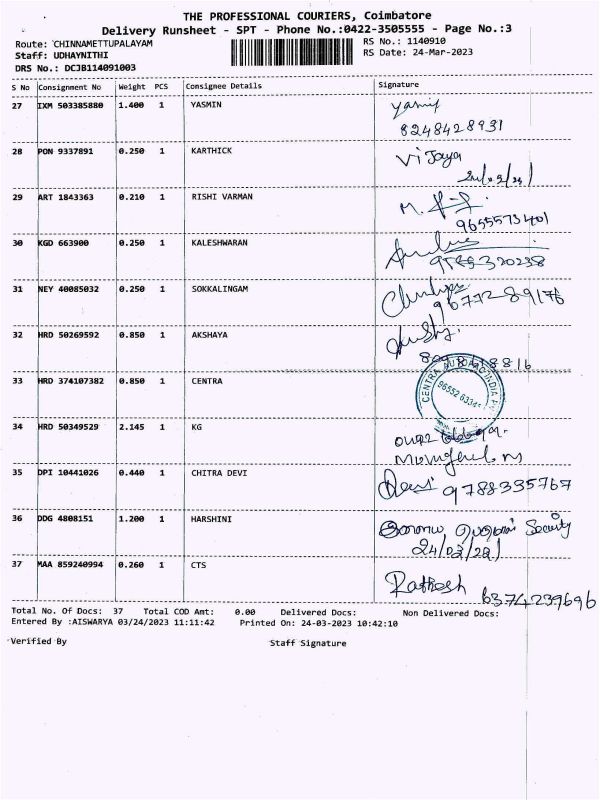 THE PROFESSIONAL COURIERS, Coimbatore
Delivery Runsheet - SPT - Phone No.:0422-3505555 - Page No.:3
Route: CHINNAMETTUPALAYAM RS No.: 1140910
Staff: UDHAYNITHI RS Date: 24-Mar-2023
DRS No.: DCJB114091003
S No Consignment No Weight PCS Consignee Details Signature
27 IXM 503385880 1.400 1 YASMIN
8248428931
28 PON 9337891 0.250 1 KARTHICK Vijaya
29 ART 1843363 0.210 1 RISHI VARMAN
9655573401
30 KGD 663900 0.250 1 KALESHWARAN
31 NEY 40085032 0.250 1 SOKKALINGAM
9677289176
32 HRD 50269592 0.850 1 AKSHAYA
33 HRD 374107382 0.850 1 CENTRA
34 HRD 50349529 2.145 1 KG
35 DPI 10441026 0.440 1 CHITRA DEVI Devi 9788335767
36 DDG 4808151 1.200 1 HARSHINI Security
37 MAA 859240994 0.260 1 CTS
6374239696
Total No. Of Docs: 37 Total COD Amt: 0.00 Delivered Docs: Non Delivered Docs:
Entered By :AISWARYA 03/24/2023 11:11:42 Printed On: 24-03-2023 10:42:10
Verified By Staff Signature